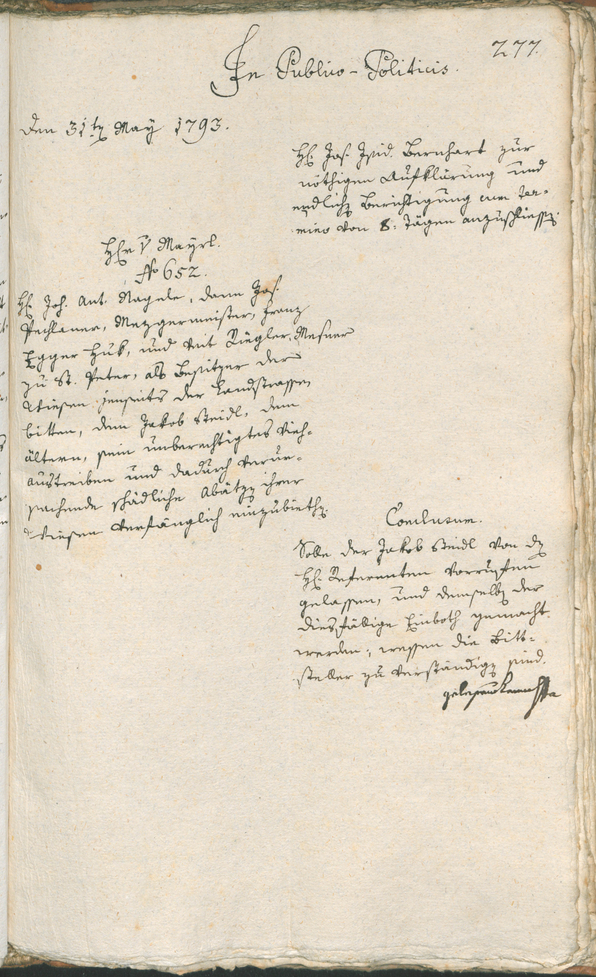 277.
In Publico-Politicis.
den 31ten May 1793.
H. Jos. Isid. Bernhart zur
nöthigen Aufklärung und
endlichen Berichtigung cum Ter-
mino von 8: Tägen anzuschliessen.
Herr v Mayrl.
No 652.
H. Joh. Ant. Nagele, dann Jos.
Pechlaner, Mezgermeister, Franz
Egger Hub, und Ant Ziegler, Mesner
zu St. Peter, als Besitzer der
Wiesen jenseits der Landstrassen
bitten, dem Jakob Steidl, dem
ältern, sein unberechtigtes Vieh-
austreiben und dadurch verur-
sachende schädliche Abätzen ihrer
Wiesen verfänglich einzubiethen.
Conclusum.
Solle der Jakob Steidl von den
H. Referenten vorrufen
gelassen, und demselben der
diesfälige Einboth gemacht
werden; wessen die Bitt-
steller zu verständigen sind.